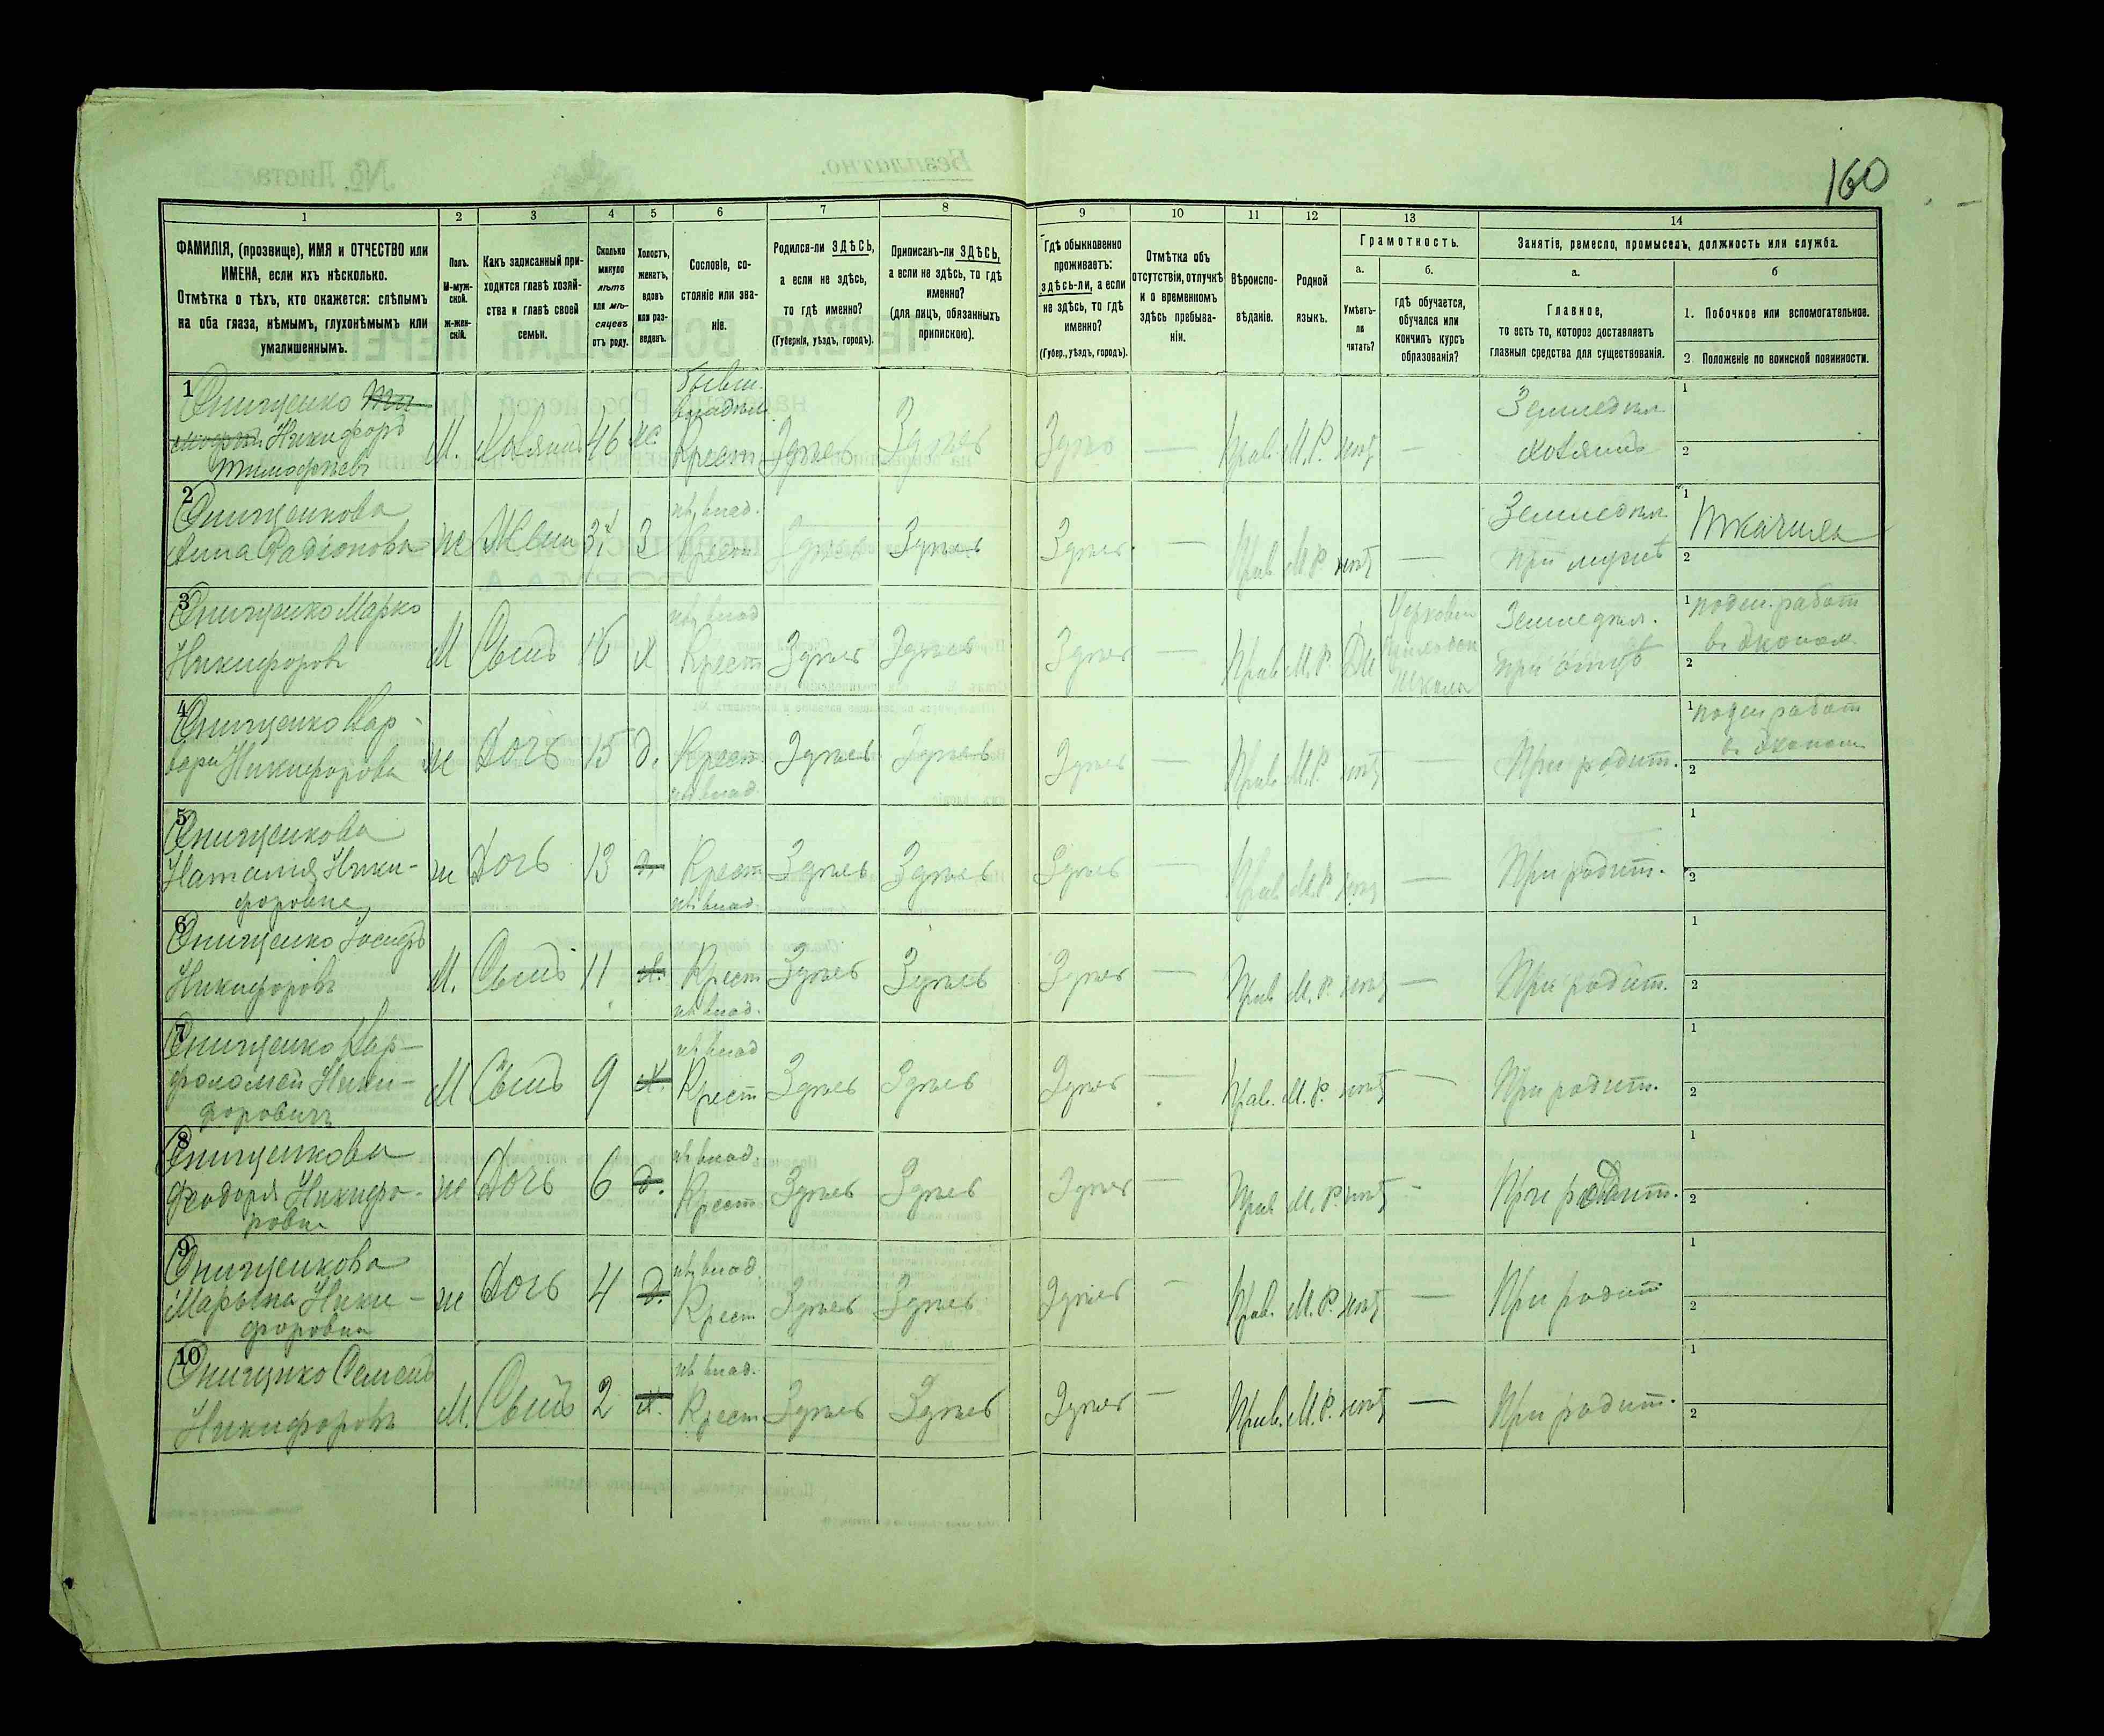 160
1
2
3
4
5
6
7
8
9
10
11
12
13
14
ФАМИЛІЯ, (прозвище), ИМЯ и ОТЧЕСТВО или
ИМЕНА, если ихъ нѣсколько.
Отмѣтка о тѣхъ, кто окажется: слѣпымъ
на оба глаза, нѣмымъ, глухонѣмымъ или
умалишеннымъ.
Полъ.
М-муж-
ской.
Ж-жен-
скій.
Какъ записанный при-
ходится главѣ хозяй-
ства и главѣ своей
семьи.
Сколько
минуло
лѣтъ
или мѣ-
сяцевъ
отъ роду.
Холостъ,
женатъ,
вдовъ
или раз-
веденъ.
Сословіе, со-
стояніе или зва-
ніе.
Родился-ли ЗДѢСЬ,
а если не здѣсь,
то гдѣ именно?
(Губернія, уѣздъ, городъ).
Приписанъ-ли ЗДѢСЬ,
а если не здѣсь, то гдѣ
именно?
(для лицъ, обязанныхъ
припискою).
Гдѣ обыкновенно
проживаетъ:
здѣсь-ли, а если
не здѣсь, то гдѣ
именно?
(Губер., уѣздъ, городъ).
Отмѣтка объ
отсутствіи, отлучкѣ
и о временномъ
здѣсь пребыва-
ніи.
Вѣроиспо-
вѣданіе.
Родной
языкъ.
Грамотность.
а.
б.
Умѣетъ-
ли
читать?
гдѣ обучается,
обучался или
кончилъ курсъ
образованія?
Занятіе, ремесло, промыселъ, должность или служба.
а.
б
Главное,
то есть то, которое доставляетъ
главныя средства для существованія.
1. Побочное или вспомогательное.
2 Положеніе по воинской повинности.
1 Онищенко
Никифоръ
Тимофѣевъ
М. Хозяинъ 46 ж
бывш.
владѣл.
Крест Здѣсь Здѣсь Здѣсь — Прав. М.Р. нѣтъ —
Земледѣл
хозяинъ
1
2
2 Онищенкова
Анна Радіонова ж Жена З
кр. влад.
Крест Здѣсь Здѣсь Здѣсь — Прав М.Р нѣтъ —
Земледѣл
при мужѣ
1 Ткачиха
2
3 Онищенко Марко
Никифоровъ М Сынъ 16 х
влад
Крест Здѣсь Здѣсь Здѣсь — Прав М.Р Да
Церковн
приходск
школа
Земледѣл.
при отцѣ
1 поден. работ
в эконом
2
4 Онищенко Вар-
вара Никифорова ж Дочь 15 д. Крест Здѣсь Здѣсь Здѣсь — Прав М.Р. нѣтъ — При родит.
влад.
1 поден работ
в эконом
2
5 Онищенкова
Наталия Ники-
форовна ж Дочь 13 д. Крест Здѣсь Здѣсь Здѣсь — Прав М.Р нѣтъ — При родит.
влад.
1
2
6 Онищенко Іосифъ
Никифоровъ М. Сынъ 11 х. Крест Здѣсь Здѣсь Здѣсь — Прав М.Р. нѣтъ — При родит.
влад.
1
2
7 Онищенко Вар-
фоломей Ники-
форовичъ М Сынъ 9 х.
влад
Крест Здѣсь Здѣсь Здѣсь — Прав. М.Р. нѣтъ — При родит.
1
2
8 Онищенкова
Феодора Никифо-
ровна ж Дочь 6 д.
влад.
Крест Здѣсь Здѣсь Здѣсь — Прав М.Р. нѣтъ - При родит.
1
2
9 Онищенкова
Марьяна Ники-
форовна ж Дочь 4 д.
влад.
Крест Здѣсь Здѣсь Здѣсь - Прав. М.Р. нѣтъ — При родит
1
2
10 Онищенко Семенъ
Никифоровъ М. Сынъ 2 х.
влад.
Крест Здѣсь Здѣсь Здѣсь — Прав. М.Р. нѣтъ — При родит.
1
2